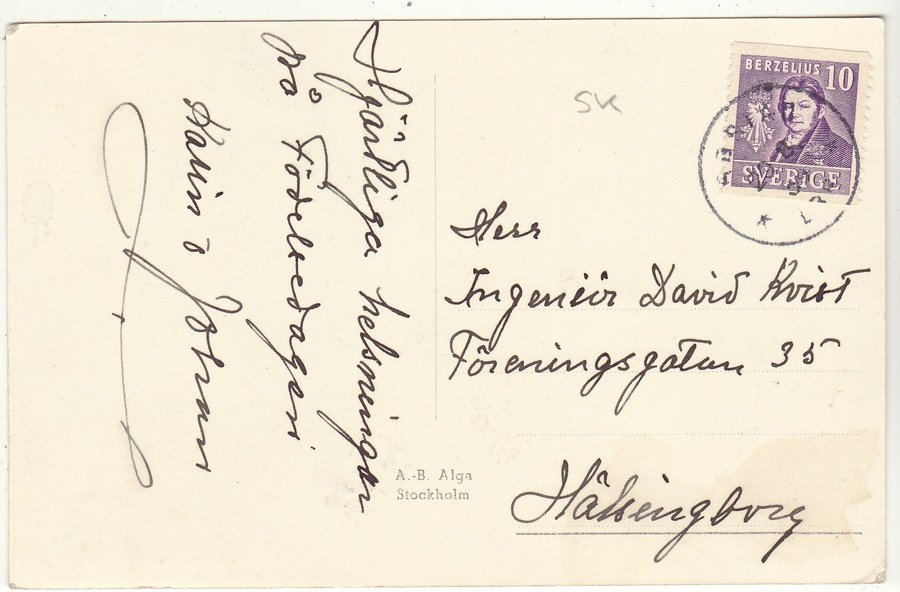 Hjärtliga helsningar
på Födelsedagen
Karin o Johan
SK
BERZELIUS 10
SVERIGE
Herr
Ingeniör David Kvist
Föreningsgatan 35
Hälsingborg
A.-B. Alga
Stockholm